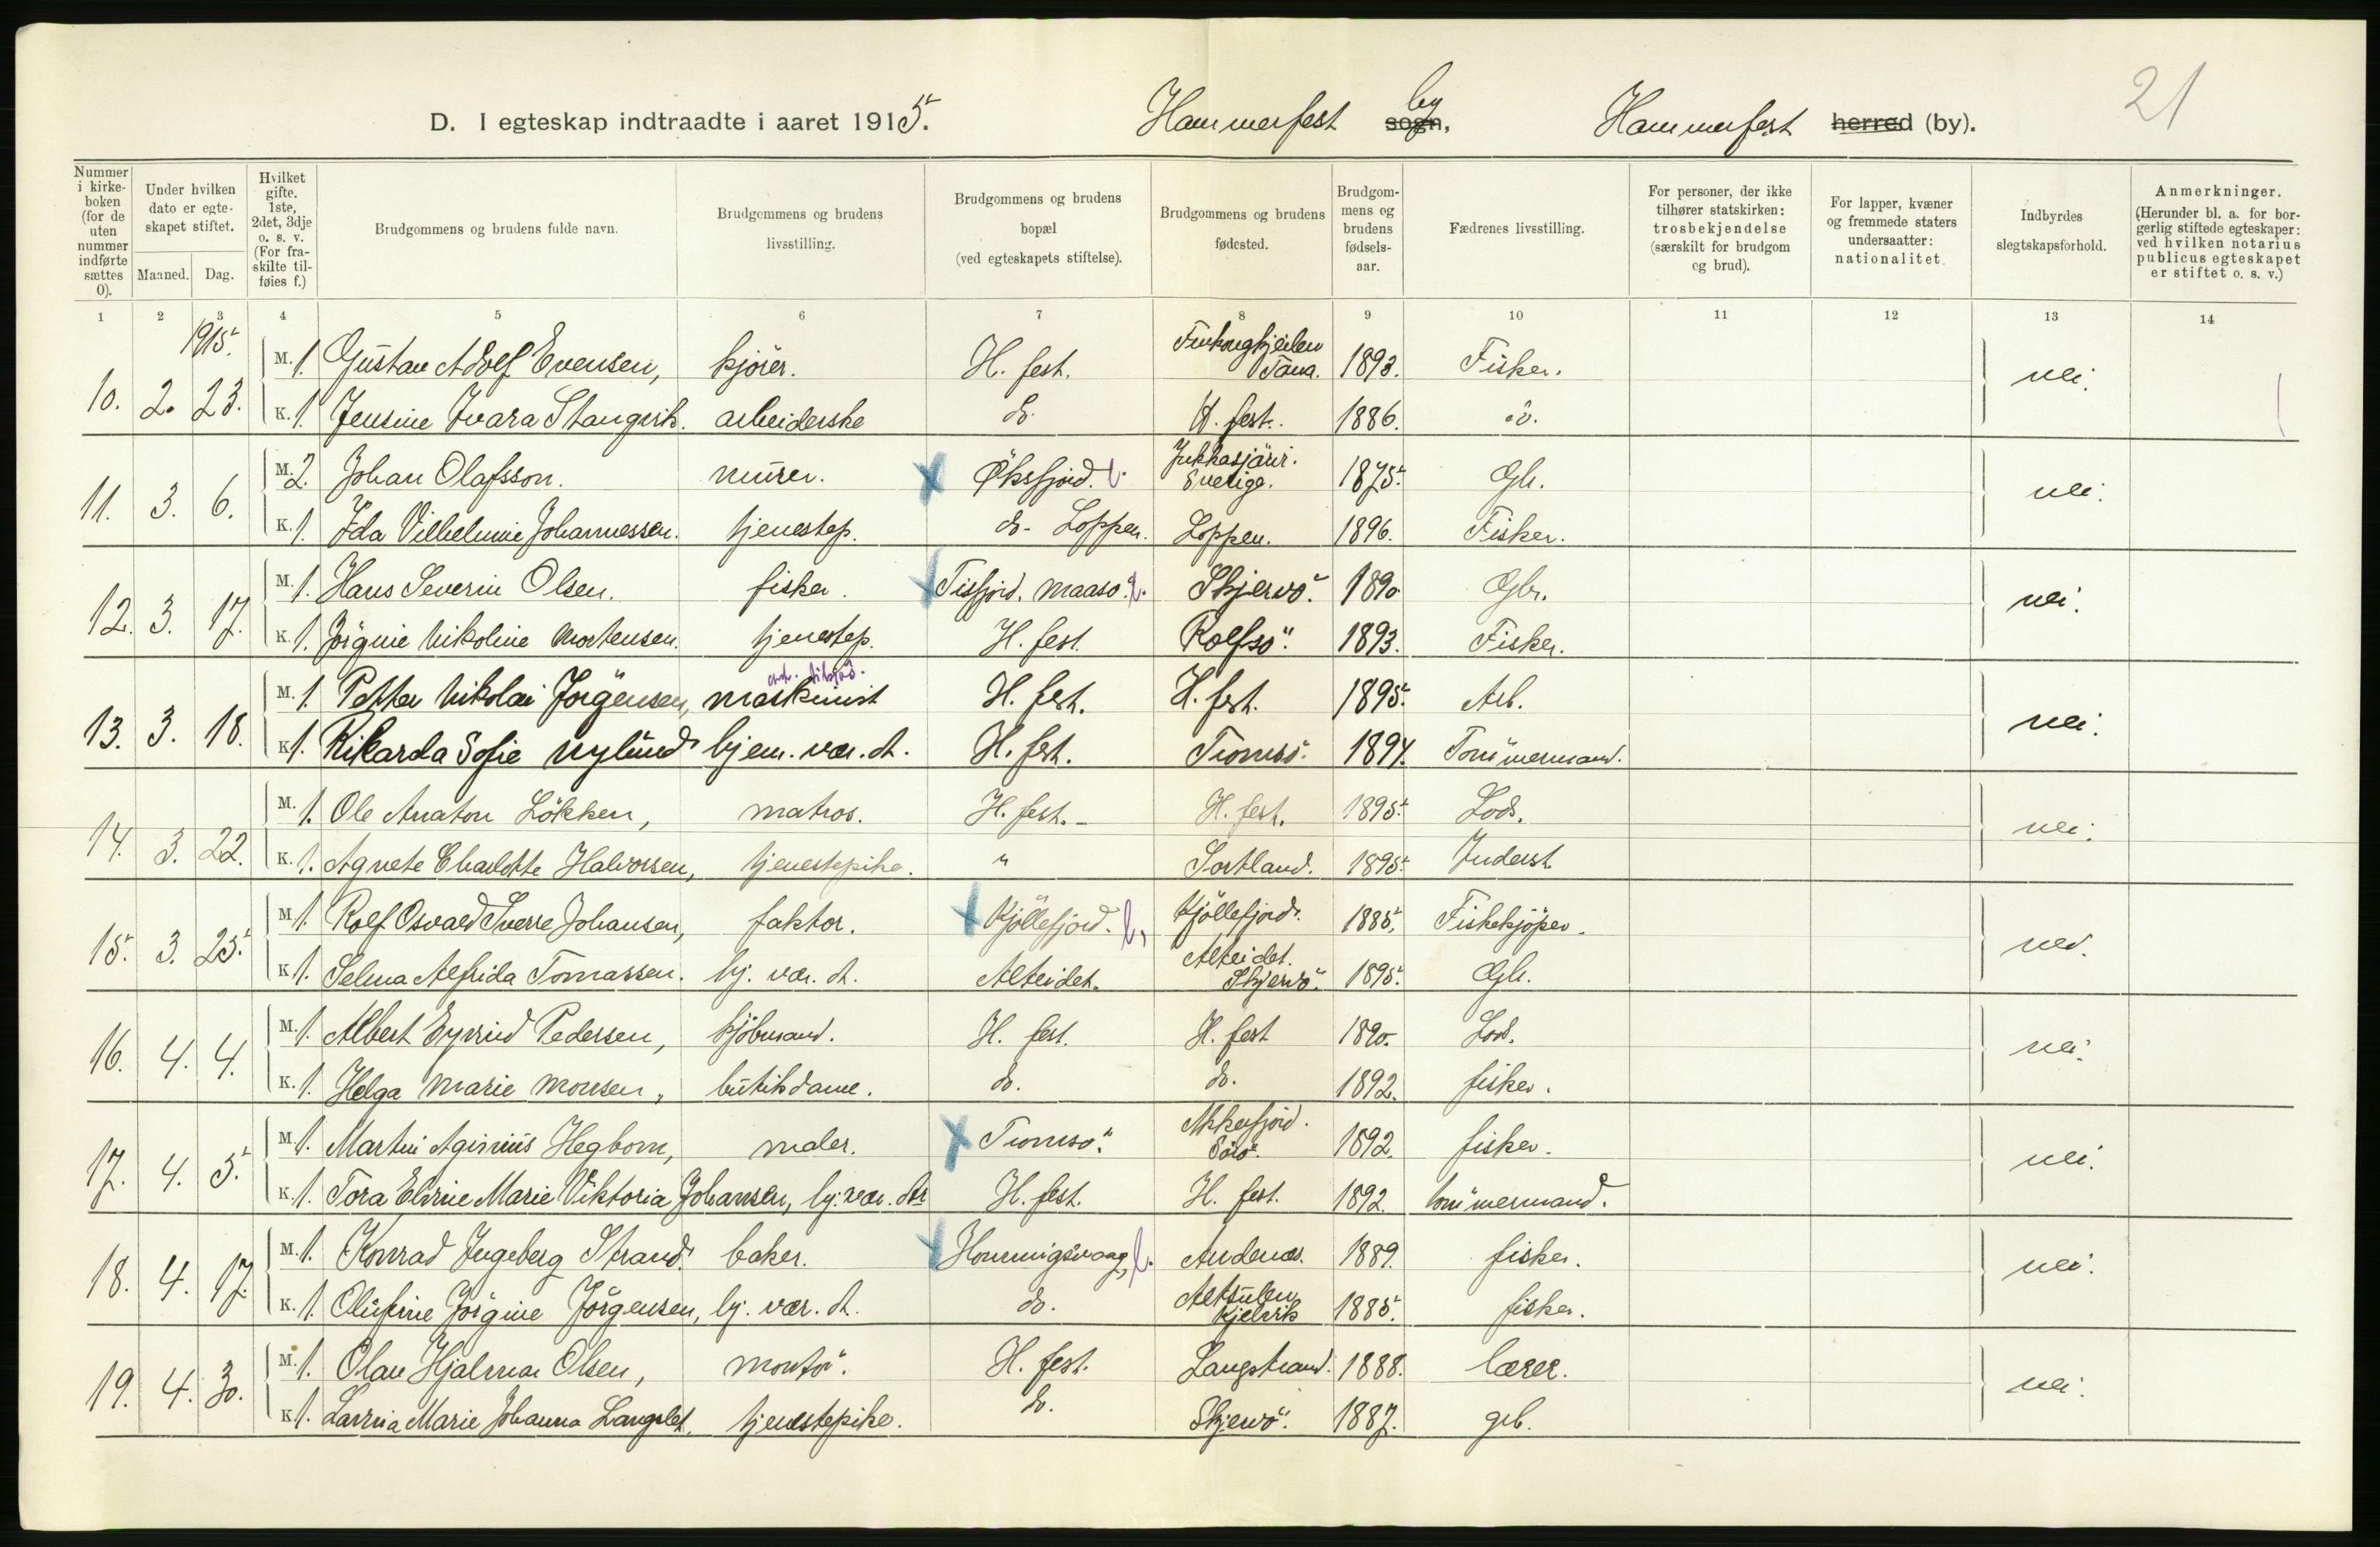 21
D. I egteskap indtraadte i aaret 1915.
Hammerfest sogn, by
Hammerfest herred (by).
Nummer i kirke-boken (for de uten nummer indførte sættes 0).
Under hvilken dato er egte-skapet stiftet.
Maaned. Dag.
Hvilket gifte. 1ste, 2det, 3dje o. s. v. (For fra-skilte til-føies f.)
Brudgommens og brudens fulde navn.
Brudgommens og brudens livsstilling.
Brudgommens og brudens bopæl (ved egteskapets stiftelse).
Brudgommens og brudens fødested.
Brudgom-mens og brudens fødsels-aar.
Fædrenes livsstilling.
For personer, der ikke tilhører statskirken: trosbekjendelse (særskilt for brudgom og brud).
For lapper, kvæner og fremmede staters undersaatter: nationalitet.
Indbyrdes slegtskapsforhold.
Anmerkninger. (Herunder bl. a. for bor-gerlig stiftede egteskaper: ved hvilken notarius publicus egteskapet er stiftet o. s. v.)
1 2 3 4 5 6 7 8 9 10 11 12 13 14
1915.
10. 2. 23. M. 1. Gustav Adolf Evensen, kjører. H. fest. Finkongkjeilen Tana. 1893. Fisker. nei.
K. 1. Jensine Ivara Stangvik. arbeiderske do. H. fest. 1886. do.
11. 3. 6. M. 2. Johan Olafsson. murer. Øksfjord. Jukkasjärvi. Sverige. 1875. Gb. nei.
K. 1. Ida Vilhelmine Johannessen. tjenestep. do - Loppen. Loppen. 1896. Fisker.
12. 3. 17. M. 1. Hans Severin Olsen. fisker. Tisfjord. Maasø. Skjervö. 1890 Gbr. nei.
K. 1. Jörgine Nikoline Mortensen. tjenestep. H. fest. Rolfsö. 1893. Fisker.
13. 3. 18. M. 1. Petter Nikolai Jörgensen, maskinist H. fest. H. fest. 1895. Arb. nei.
K. 1. Rikarda Sofie Nylund hjem. vær. dt. H. fest. Tromsö. 1894. Tömmermand.
14. 3. 22. M. 1. Ole Anaton Lökken, matros. H. fest. - H. fest. 1895. Lods. nei.
K. 1. Agnete Charlotte Halvorsen, tjenestepike. " Sortland. 1895. Inderst
15. 3. 25. M. 1. Rolf Osvald Sverre Johansen, faktor. Kjöllefjord. Kjöllefjord. 1885. Fiskekjöper. nei.
K. 1. Selma Alfrida Tomassen. hj. vær. dt. Alteidet. Alteidet. Skjervö. 1895. Gb.
16. 4. 4. M. 1. Albert Eyvind Pedersen, kjöbmand. H. fest. H. fest 1890. Lods. nei.
K. 1. Helga Marie Monsen, butikdame. do. do. 1892. fisker.
17. 4. 5. M. 1. Martin Aginius Hegbom, maler. Tromsö. Akkerfjord. Sörö. 1892. fisker. nei.
K. 1. Tora Elvine Marie Viktoria Johansen, hj. vær. dtr H. fest. H. fest. 1892. tömmermand.
18. 4. 17. M. 1. Konrad Ingeberg Strand. baker. Honningsvaag, Andenæs. 1889. fisker. nei.
K. 1. Olufine Jörgine Jörgensen, hj. vær. dt. do. Altsulen Kjelvik 1885. fisker.
19. 4. 30. M. 1. Olav Hjalmar Olsen, montör. H. fest. Langstrand. 1888. lærer. nei.
K. 1. Lavina Marie Johanna Langslet. tjenestepike. do. Skjervö. 1887. gb.